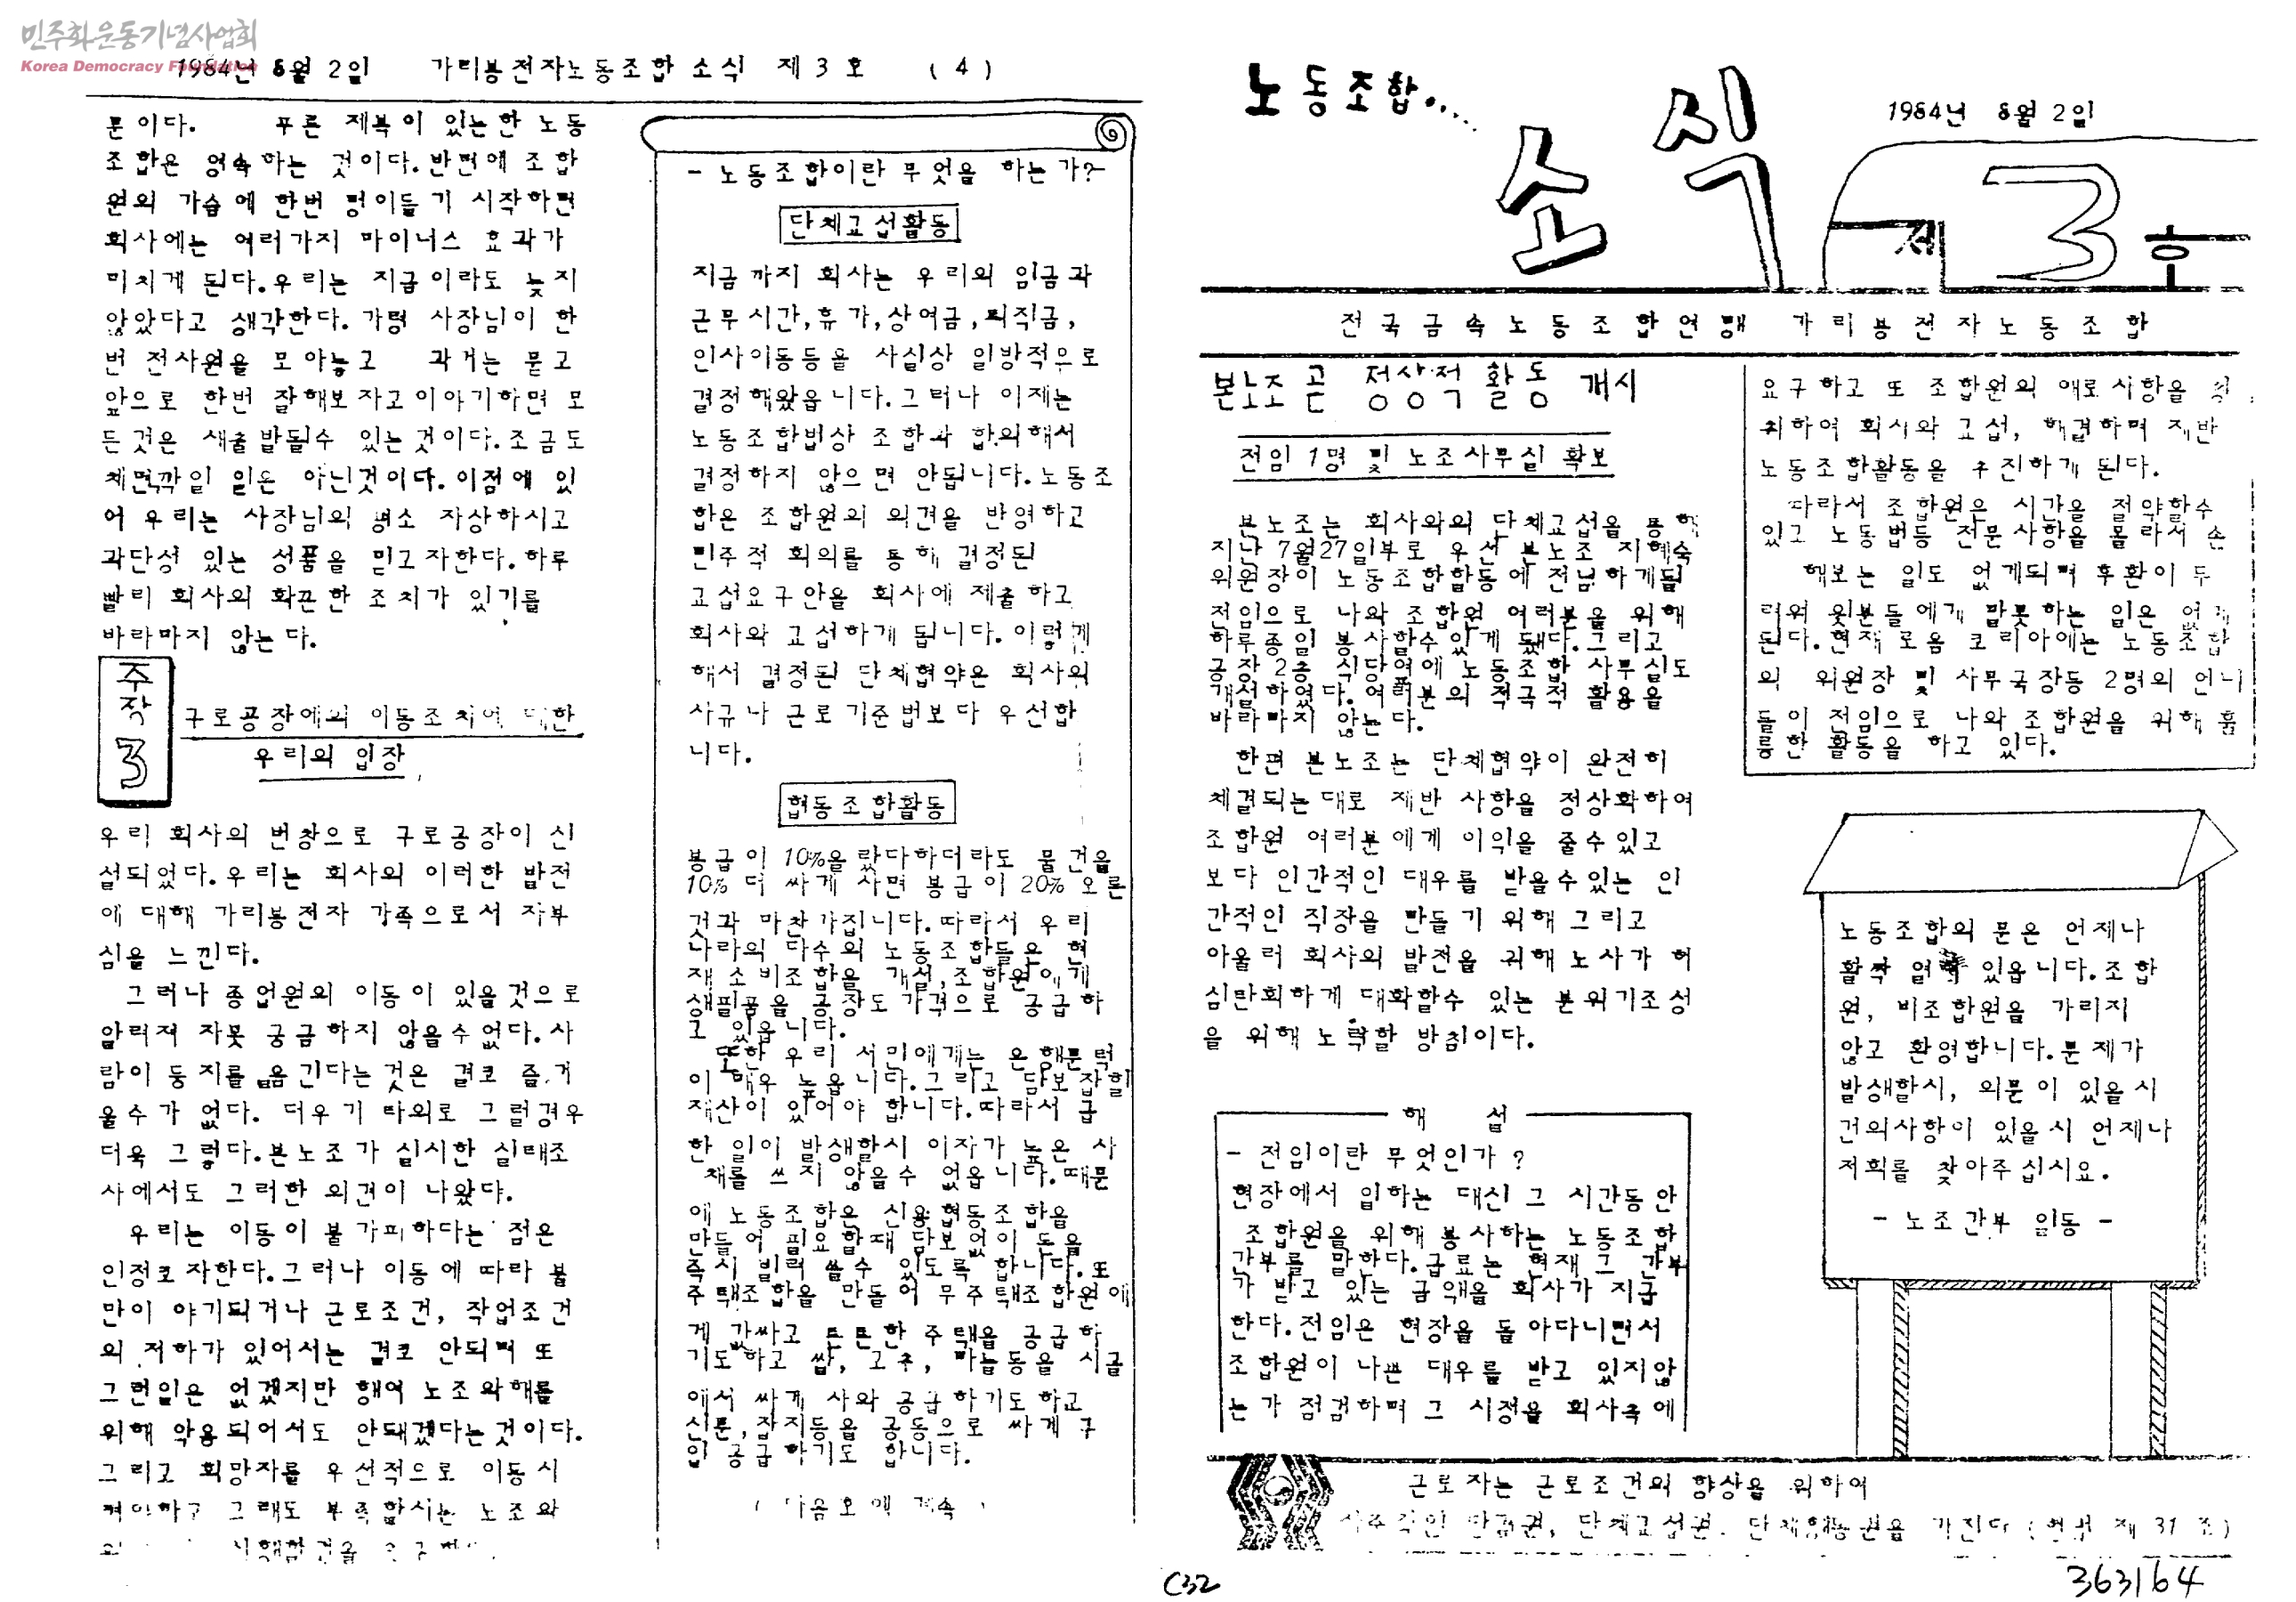 민주화운동기념사업회
Korea Democracy Foundation
1984년 8월 2일 가리봉전자노동조합 소식 제 3 호 (4)
문이다. 푸른 제복이 있는한 노동
조합은 영속하는 것이다.반면에 조합
원의 가슴에 한번 멍이들기 시작하면
회사에는 여러가지 마이너스 효과가
미치게 된다.우리는 지금이라도 늦지
않았다고 생각한다.가령 사장님이 한
번 전사원을 모아놓고 과거는 묻고
앞으로 한번 잘해보자고이야기하면 모
든것은 새출발될수 있는것이다.조금도
체면깎일 일은 아닌것이다.이점에 있
어 우리는 사장님의 평소 자상하시고
과단성 있는 성품을 믿고자한다.하루
빨리 회사의 화끈한 조치가 있기를
바라마지 않는다.
주장 3
구로공장에의 이동조치에 대한
우리의 입장
우리 회사의 번창으로 구로공장이 신
설되었다.우리는 회사의 이러한 발전
에 대해 가리봉전자 가족으로서 자부
심을 느낀다.
그러나 종업원의 이동이 있을것으로
알려져 자못 궁금하지 않을수없다.사
람이 둥지를 옮긴다는것은 결코 즐거
울수가 없다. 더우기 타의로 그럴경우
더욱 그렇다.본노조가 실시한 실태조
사에서도 그러한 의견이 나왔다.
우리는 이동이 불가피하다는 점은
인정코자한다.그러나 이동에 따라 불
만이 야기되거나 근로조건, 작업조건
의 저하가 있어서는 결코 안되며 또
그런일은 없겠지만 행여 노조와해를
위해 악용되어서도 안돼겠다는것이다.
그리고 희망자를 우선적으로 이동시
켜야하고 그래도 부족할시는 노조와
- 노동조합이란 무엇을 하는가?-
단체교섭활동
지금까지 회사는 우리의 임금과
근무시간,휴가,상여금,퇴직금,
인사이동등을 사실상 일방적으로
결정해왔읍니다.그러나 이제는
노동조합법상 조합과 합의해서
결정하지 않으면 안됩니다.노동조
합은 조합원의 의견을 반영하고
민주적 회의를 통해 결정된
교섭요구안을 회사에 제출하고
회사와 교섭하게 됩니다.이렇게
해서 결정된 단체협약은 회사의
사규나 근로기준법보다 우선합
니다.
협동조합활동
봉급이 10%올랐다하더라도 물건을
10% 더 싸게 사면 봉급이 20% 오른
것과 마찬가집니다.따라서 우리
나라의 다수의 노동조합들은 현
재 소비조합을 개설,조합원에게
생필품을 공장도가격으로 공급하
고 있읍니다.
또한 우리 서민에게는 은행문턱
이 매우 높읍니다.그리고 담보잡힐
재산이 있어야 합니다.따라서 급
한 일이 발생할시 이자가 높은 사
채를 쓰지 않을수 없읍니다.때문
에 노동조합은 신용협동조합을
만들어 필요할때 담보없이 돈을
즉시 빌려 쓸수 있도록 합니다.또
주택조합을 만들어 무주택조합원에
게 값싸고 튼튼한 주택을 공급하
기도하고 쌀, 고추, 마늘등을 시골
에서 싸게 사와 공급하기도하고
신문,잡지등을 공동으로 싸게 구
입 공급하기도 합니다.
( 다음호에 계속 )
노동조합....
소식
1984년 8월 2일
제 3 호
전국금속노동조합연맹 가리봉전자노동조합
본노조 곧 정상적 활동 개시
전임 1명 및 노조사무실 확보
본노조는 회사와의 단체교섭을 통해
지난 7월27일부로 우선 본노조 지혜숙
위원장이 노동조합활동에 전념하게될
전임으로 나와 조합원 여러분을 위해
하루종일 봉사할수있게 됐다.그리고
공장 2층 식당옆에 노동조합 사무실도
개설하였다.여러분의 적극적 활용을
바라마지 않는다.
한편 본노조는 단체협약이 완전히
체결되는대로 제반 사항을 정상화하여
조합원 여러분에게 이익을 줄수있고
보다 인간적인 대우를 받을수있는 인
간적인 직장을 만들기위해 그리고
아울러 회사의 발전을 위해 노사가 허
심탄회하게 대화할수 있는 분위기조성
을 위해 노력할 방침이다.
해 설
- 전임이란 무엇인가?
현장에서 일하는 대신 그 시간동안
조합원을 위해 봉사하는 노동조합
간부를 말한다.급료는 현재 그 간부
가 받고 있는 금액을 회사가 지급
한다.전임은 현장을 돌아다니면서
조합원이 나쁜 대우를 받고 있지않
는가 점검하며 그 시정을 회사측에
요구하고 또 조합원의 애로사항을 청
취하여 회사와 교섭, 해결하며 제반
노동조합활동을 추진하게 된다.
따라서 조합원은 시간을 절약할수
있고 노동법등 전문사항을 몰라서 손
해보는 일도 없게되며 후환이 두
려워 윗분들에게 말못하는 일은 없게
된다.현재 로옴 코리아에는 노동조합
의 위원장 및 사무국장등 2명의 언니
들이 전임으로 나와 조합원을 위해 훌
륭한 활동을 하고 있다.
노동조합의 문은 언제나
활짝 열려 있읍니다.조합
원, 비조합원을 가리지
않고 환영합니다.문제가
발생할시, 의문이 있을시
건의사항이 있을시 언제나
저희를 찾아주십시요.
- 노조간부 일동 -
근로자는 근로조건의 향상을 위하여
자주적인 단결권, 단체교섭권, 단체행동권을 가진다(헌법 제 31 조)
C32
363164